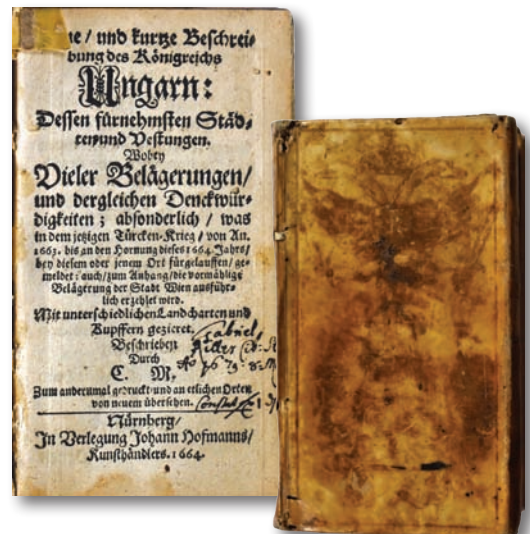 ne / und kurtze Beschrei-
bung des Königreichs
Ungarn:
Dessen fürnehmsten Städ-
ten und Vestungen.
Wobey
Vieler Belägerungen/
und dergleichen Denckwür-
digkeiten; absonderlich / was
in dem jetzigen Türcken-Krieg / von An.
1663. bis an den Hornung dieses 1664. Jahrs/
bey diesem oder jenem Ort fürgelauffen / ge-
meldet: auch / zum Anhang / die vormählige
Belägerung der Stadt Wien ausführ-
lich erzehlet wird.
Mit unterschiedlichen Landcharten und
Kupffern gezieret.
Beschrieben
Durch
C. M.
Gabriel
Zum andernmal gedruckt und an etlichen Orten
von neuem übersehen.
Nürnberg/
In Verlegung Johann Hofmanns/
Kunsthändlers. 1664.